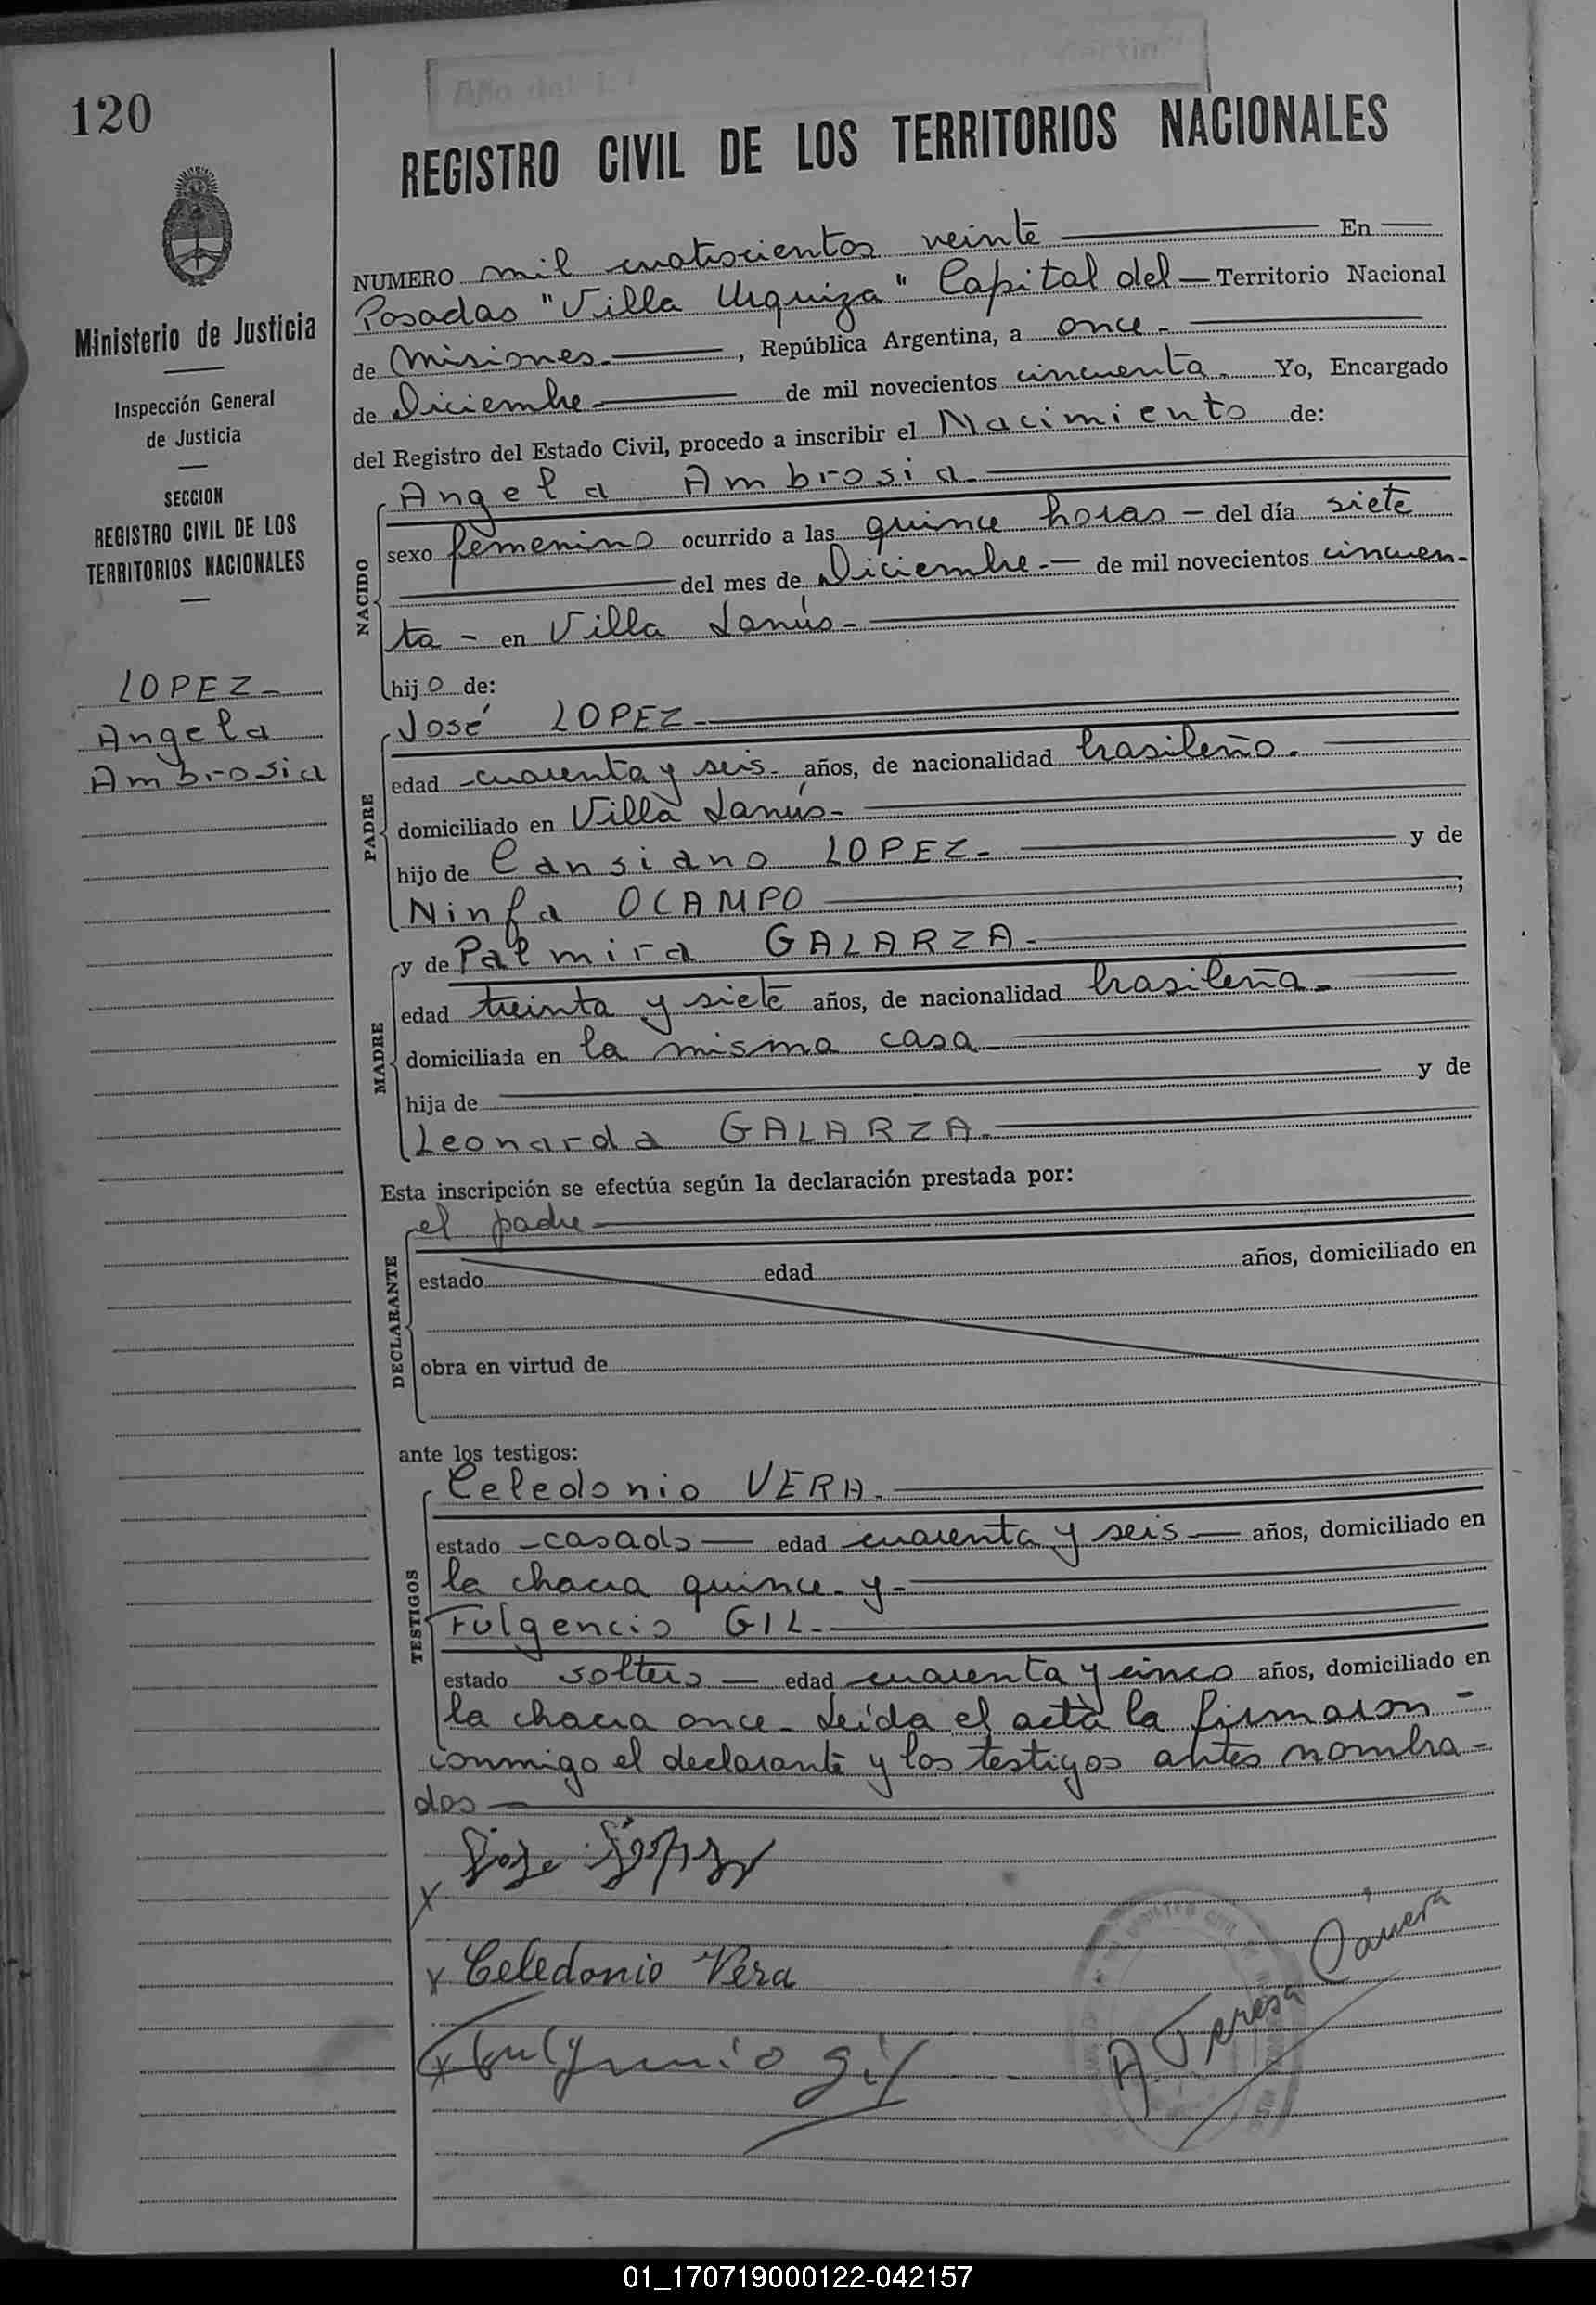 120
REGISTRO CIVIL DE LOS TERRITORIOS NACIONALES
Ministerio de Justicia
Inspección General
de Justicia
SECCION
REGISTRO CIVIL DE LOS
TERRITORIOS NACIONALES
LOPEZ-
Angela
Ambrosia
NUMERO mil cuatrocientos veinte En
Posadas "Villa Urquiza" Capital del - Territorio Nacional
de Misiones.-, República Argentina, a once.-
de Diciembre de mil novecientos cincuenta. Yo, Encargado
del Registro del Estado Civil, procedo a inscribir el Nacimiento de:
NACIDO
Angela Ambrosia.
sexo femenino ocurrido a las quince horas - del día siete
del mes de Diciembre.- de mil novecientos cincuen-
ta - en Villa Lanús-
hijo de:
PADRE
José LOPEZ-
edad cuarenta y seis- años, de nacionalidad brasileño.
domiciliado en Villa Lanús-
hijo de Cansiano LOPEZ- y de
Ninfa OCAMPO ;
MADRE
y de Palmira GALARZA-
edad treinta y siete años, de nacionalidad brasileña.
domiciliada en la misma casa-
hija de y de
Leonarda GALARZA-
Esta inscripción se efectúa según la declaración prestada por:
DECLARANTE
el padre
estado edad años, domiciliado en
obra en virtud de
ante los testigos:
TESTIGOS
Celedonio VERA.
estado casado edad cuarenta y seis años, domiciliado en
la chacra quince y-
Fulgencio GIL-
estado soltero edad cuarenta y cinco años, domiciliado en
la chacra once- Leída el acta la firmaron-
conmigo el declarante y los testigos antes nombra-
dos-
x Jose Lopez
x Celedonio Vera
x Fulgencio gil
A. Teresa
01_170719000122-042157